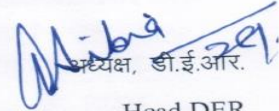 अध्यक्ष, डी.ई.आर.
Head DER